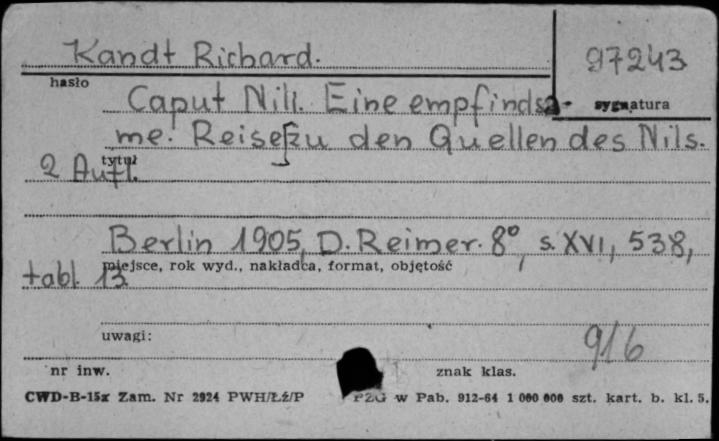 Kandt Richard.
97243
hasło
Caput Nili. Eine empfindsa-
sygnatura
me. Reise zu den Quellen des Nils.
tytuł
2 Aufl.
Berlin 1905, D. Reimer. 8°, s. XVI, 538,
miejsce, rok wyd., nakładca, format, objętość
tabl. 13.
uwagi:
916
nr inw.
znak klas.
CWD-B-15x Zam. Nr 2924 PWH/Łź/P PZG w Pab. 912-64 1 000 000 szt. kart. b. kl. 5.